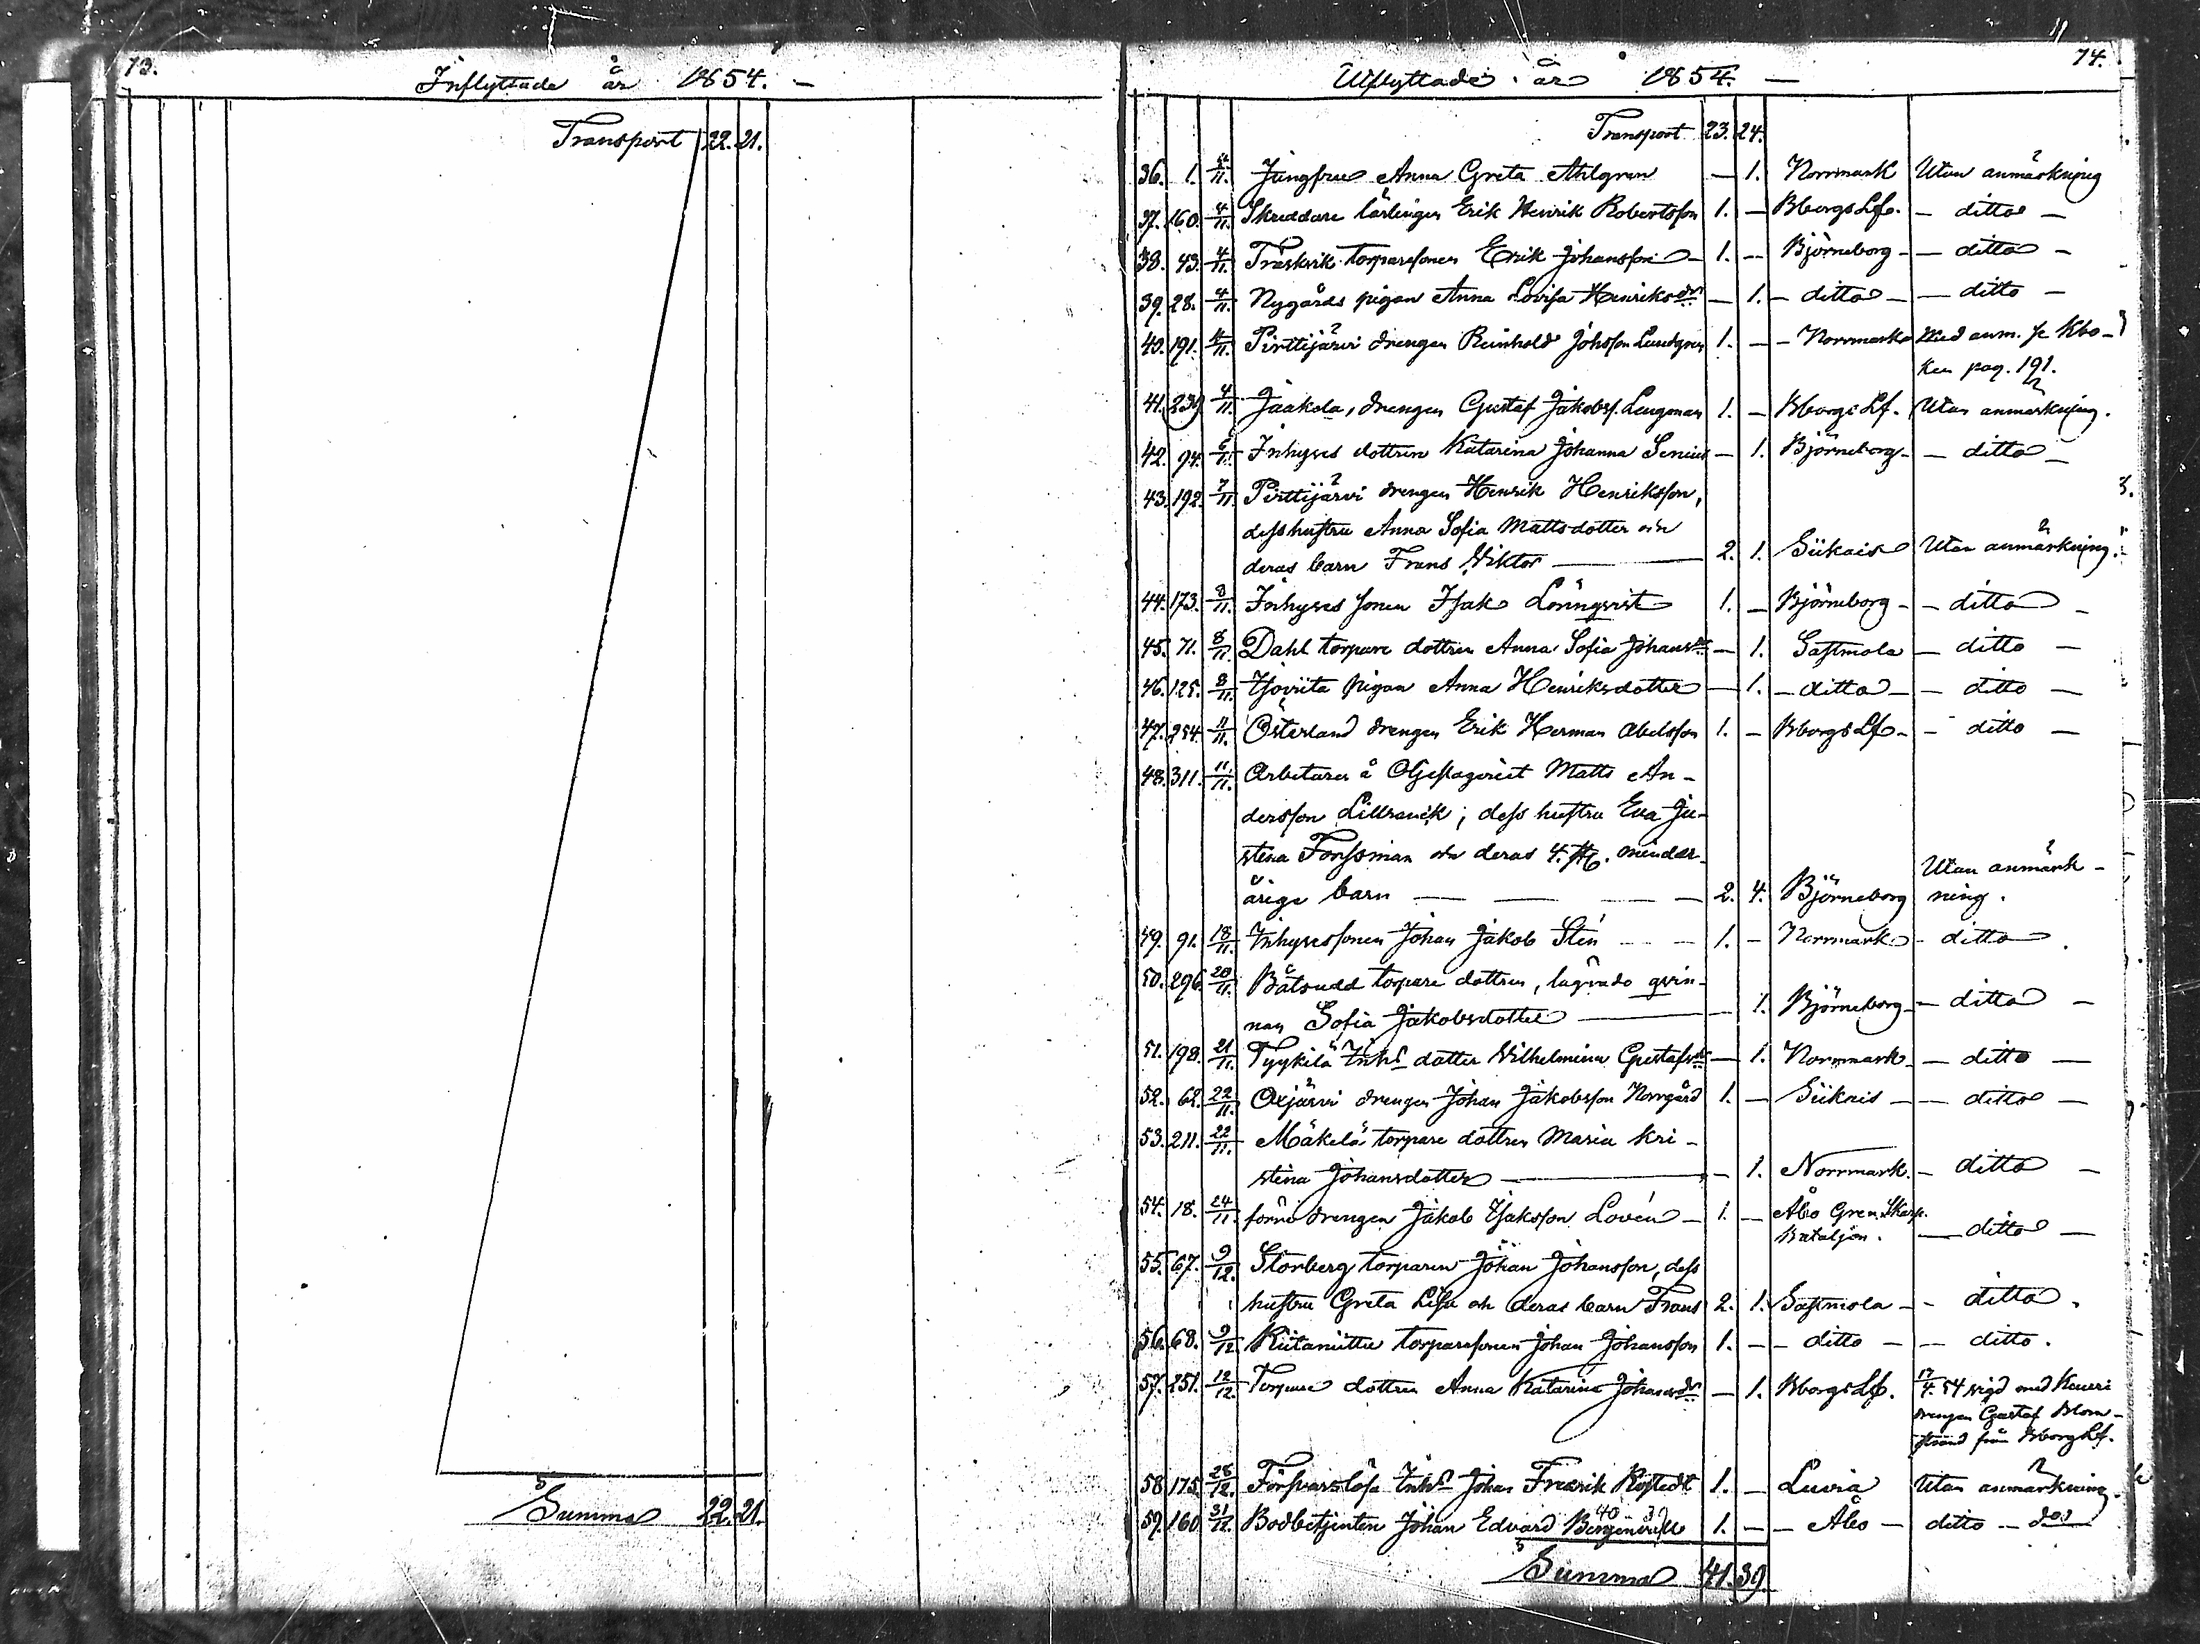 73.
Inflyttade år 1854. —
Transport 22. 21.
Summa 22. 21.
74.
Utflyttade år 1854. —
Transport 23. 24.
36. 1. 4/11. Jungfru Anna Greta Ahlgren — 1. Norrmark Utan anmärkning
37. 160. 4/11. Skreddare lärlingen Erik Henrik Robertsson 1. — Bborgs Lf. — ditto —
38. 43. 4/11. Träskvik torparesonen Erik Johansson — 1. — Björneborg — — ditto —
39. 28. 4/11. Nygårds pigan Anna Lovisa Henriksdr — 1. — ditto — — ditto —
40. 191. 4/11. Pirttijärvi drengen Reinhold Johsson Lundgren 1. — — Norrmark Med anm. se Kbo-
ken pag. 191.
41. 239 4/11. Jaakola, drengen Gustaf Jakobss. Lengman 1. — Bborgs Lf. Utan anmärkning.
42. 94. 6/11. Inhyses dottren Katarina Johanna Senius — 1. Björneborg — — ditto —
43. 192. 7/11. Pirttijärvi drengen Henrik Henriksson,
dess hustru Anna Sofia Mattsdotter och
deras barn Frans Viktor — 2. 1. Siikais Utan anmärkning.
44. 173. 8/11. Inhyses sonen Isak Lönnqvist 1. — Björneborg — — ditto —
45. 71. 8/11. Dahl torpare dottren Anna Sofia Johansdr — 1. Sastmola — ditto —
46. 125. 8/11. pigan Anna Henriksdotter — 1. — ditto — — ditto —
47. 254. 11/11. Österland drengen Erik Herman Abelsson 1. — Bborgs Lf — — ditto —
48. 311. 11/11. Arbetaren å Matts An-
dersson dess hustru Eva Ju-
stina Forssman och deras 4. minder-
årige barn — — — — 2. 4. Björneborg Utan anmärk-
ning.
49. 91. 18/11. Inhysessonen Johan Jakob Stén — — 1. — Norrmark — ditto .
50. 296. 20/11. Båtsudd torpare dottren, qvin-
nan Sofia Jakobsdotter — — 1. Björneborg — ditto —
51. 198. 21/11. Tyykilä Inhs dotter Vilhelmina Gustafsdr — 1. Norrmark — — ditto —
52. 62. 22/11. Oxjärvi drengen Johan Jakobsson Norrgård 1. — Siikais — — ditto —
53. 211. 22/11. Mäkelä torpare dottren Maria Kri-
stina Johansdotter — — 1. Norrmark. — ditto —
54. 18. 24/11. förre drengen Jakob Isaksson Lovén — 1. — Åbo Gren. Skarp.
Bataljon. — ditto —
55. 67. 9/12. Storberg torparen Johan Johansson, dess
hustru Greta Lisa och deras barn Frans 2. 1. Sastmola — — ditto .
56. 68. 9/12 Riitaniittu torparesonen Johan Johansson 1. — — ditto — — ditto .
57. 251. 12/12. Torpare dottren Anna Katarina Johansdr — 1. Bborgs Lf. 17/4. 54 vigd med
drengen Gustaf Blom-
strand från Bborgs Lf.
58 175. 28/12. Försvarslöse Inhs Johan Fredrik 1. — Luvia Utan anmärkning.
59. 160 31/12. Bodbetjenten Johan Edvard 1. — — Åbo — ditto — do
40 39
Summa 41. 39.